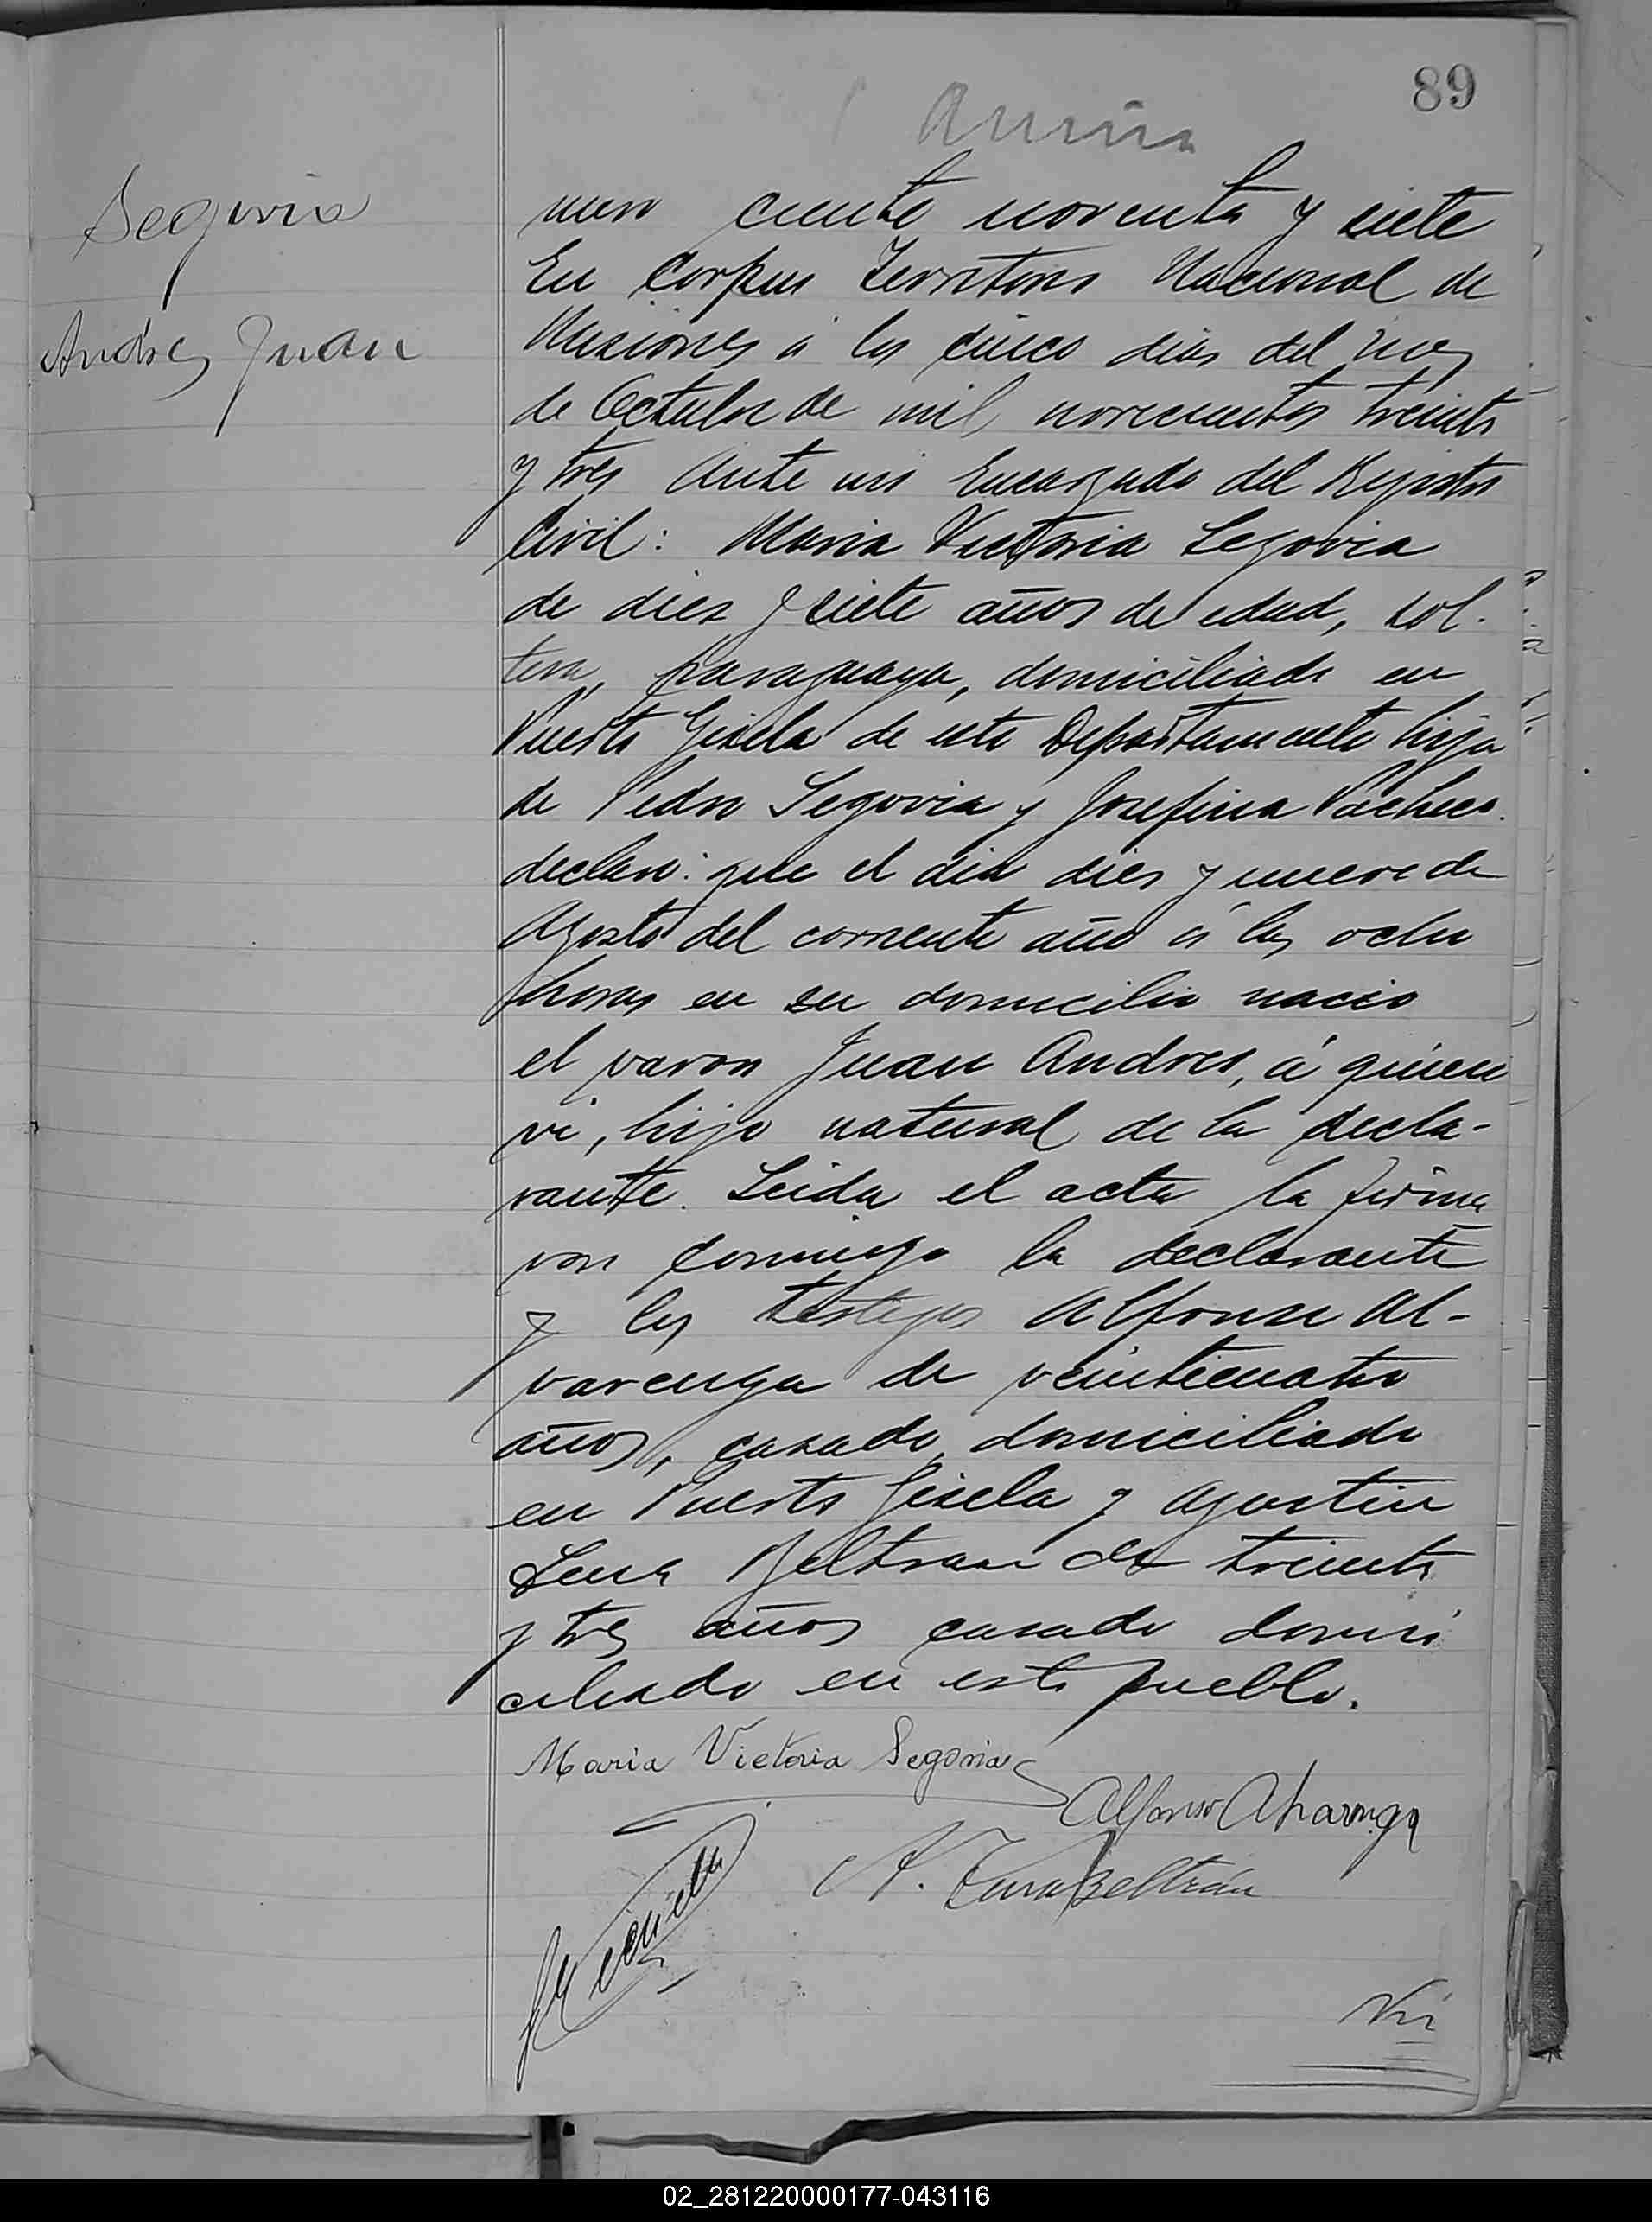 89
Segovia
Andres Juan
mero ciento noventa y siete
En Corpus Territorio Nacional de
Misiones á los cinco dias del mes
de Octubre de mil novecientos treinta
y tres ante mi Encargado del Registro
Civil: Maria Victoria Segovia
de diez y siete años de edad, sol-
tera, paraguaya, domiciliada en
Puerto Gisela de este Departamento hija
de Pedro Segovia y Josefina Pacheco.
declaro: que el dia diez y nueve de
Agosto del corriente año á las ocho
horas en su domicilio nacio
el varon Juan Andres, á quien
vi, hijo natural de la decla-
rante. Leida el acta la firma
ron conmigo la declarante
y los testigos Alfonso Al-
varenga de veinticuatro
años, casado, domiciliado
en Puerto Gisela y Agustin
Luna Beltran de treinta
y tres años casado domi
ciliado en este pueblo.
Maria Victoria Segovia
Alfonso Alvarenga
A. Luna Beltrán
02_281220000177-043116